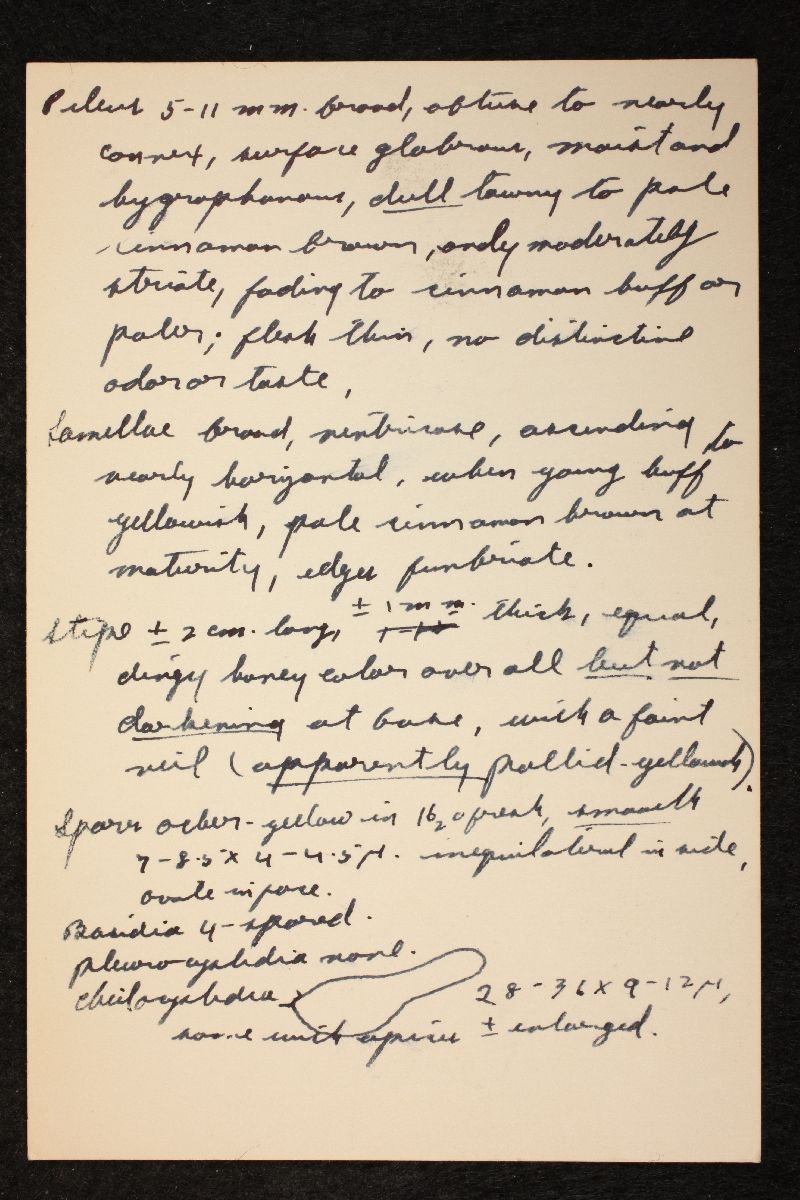 Pileus 5-11 mm. broad, obtuse to nearly
convex, surface glabrous, moist and
hygrophanous, dull tawny to pale
cinnamon brown, only moderately
striate, fading to cinnamon buff or
paler; flesh thin, no distinctive
odor or taste,
Lamellae broad, ventricose, ascending to
nearly horizontal, when young buff
yellowish, pale cinnamon brown at
maturity, edges fimbriate.
Stipe ± 2 cm. long, ± 1 mm. thick, equal,
dingy honey color over all but not
darkening at base, with a faint
veil (apparently pallid-yellowish).
Spores ocher-yellow in H₂O fresh, smooth
7-8.5 x 4-4.5 µ. inequilateral in side,
ovate in face.
Basidia 4-spored.
pleurocystidia none.
cheilocystidia 28-36 x 9-12 µ,
some with apices ± enlarged.